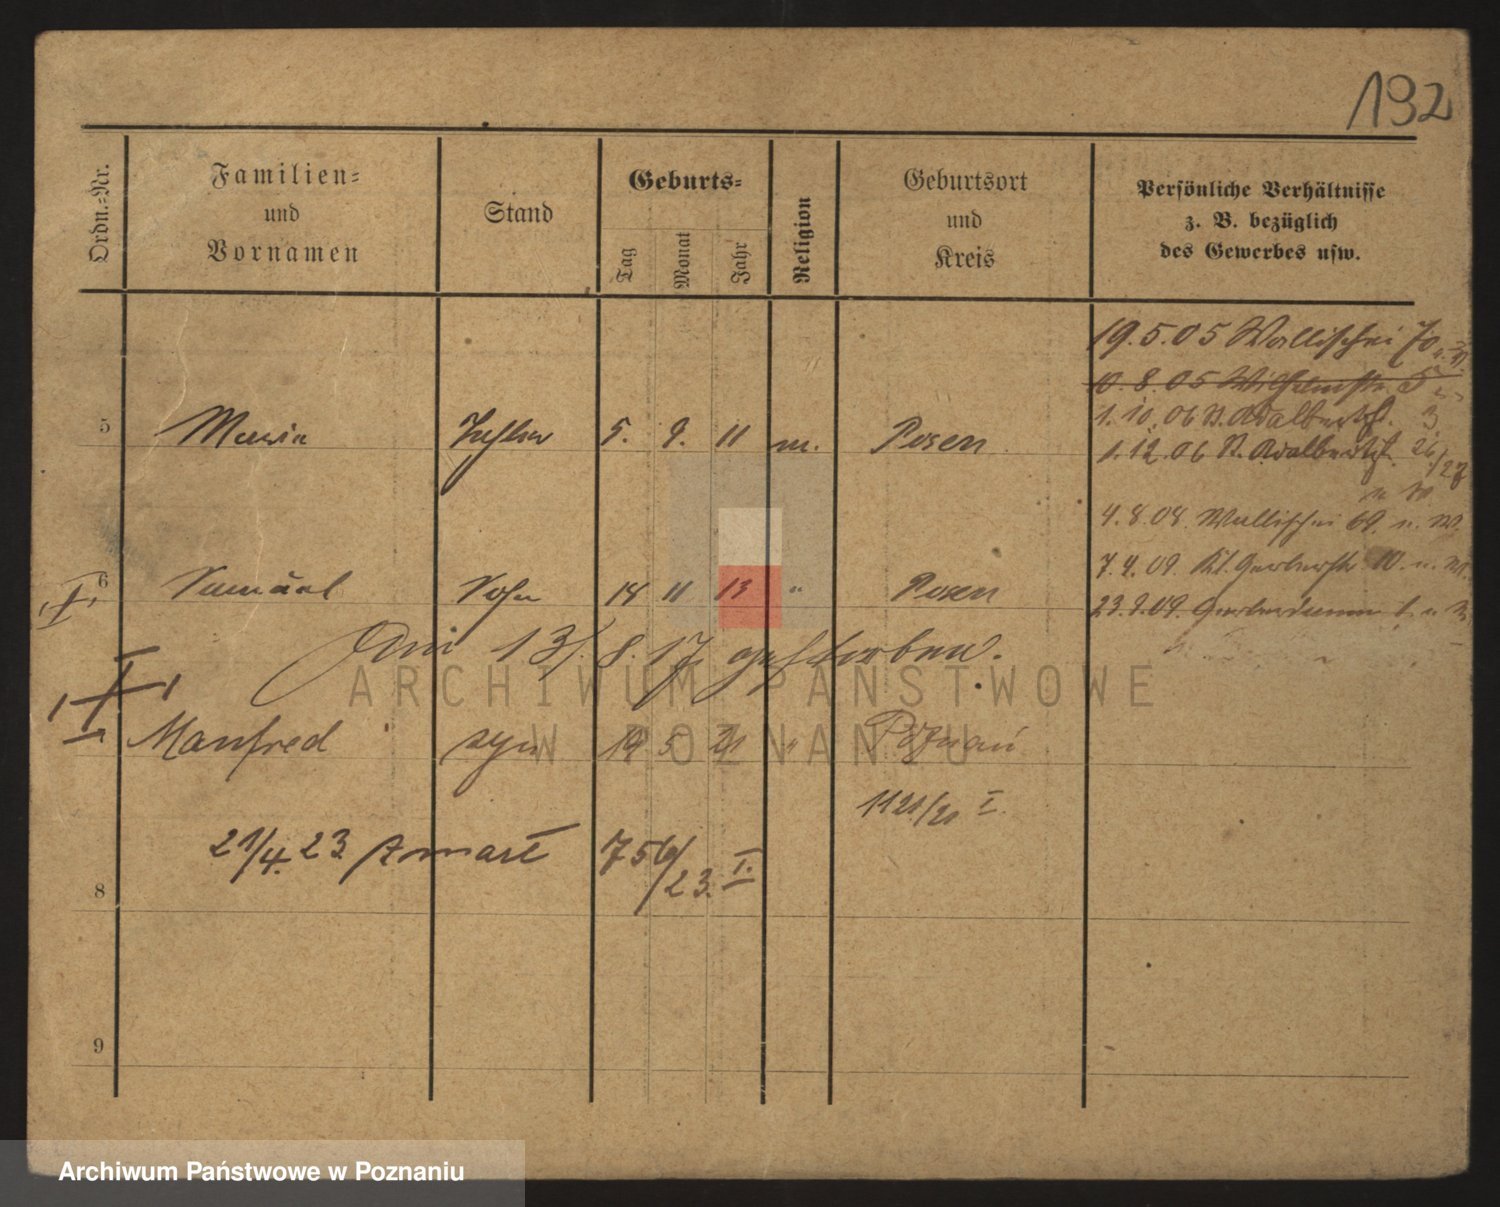 192
Ordn.-Nr.
Familien-
und
Vornamen
Stand
Geburts-
Tag
Monat
Jahr
Religion
Geburtsort
und
Kreis
Persönliche Verhältnisse
z. B. bezüglich
des Gewerbes usw.
19.5.05 Wallischei 70
10.8.05 Wilhelmstr. 5
1.10.06 St. Adalbertstr. 3
1.12.06 St. Adalbertstr. 26/27
4.8.08. Wallischei 69. n. W.
7.4.09. Kl. Gerberstr. 10. n. W.
23.9.09. Gerberdamm 1. n. W.
5 Maria Tochter 5. 9. 11 m. Posen
6 Samuel Sohn 14 11 13 " Posen
Am 13/8.17 gestorben.
Manfred syn 19 5 21 " Poznań
1121/21 I.
21/4.23 zmarł 756/23. I.
8
9
ARCHIWUM PAŃSTWOWE
W POZNANIU
Archiwum Państwowe w Poznaniu